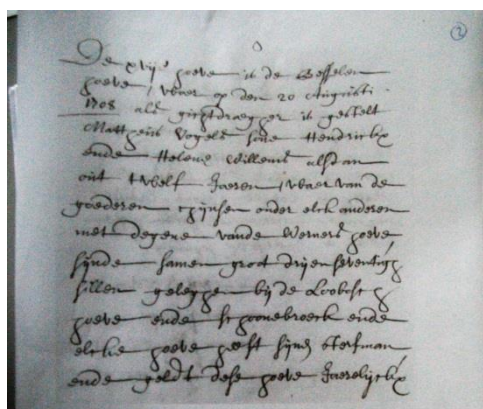 2
De xvij.e hoeve is de Gesselen
hoeve, waer op den 20 Augusti
1708 als hooftdraegher is gestelt
Mattheus Vogels sone Hendrickx
ende Helena Willems alsdan
out twelf Jaeren, waer van de
goederen chijnsen onder elckanderen
met degene vande Werners hoeve
sijnde samen groot drijenseventigh
sillen geleghen bij de Loobosch
hoeve ende schoonebroeck ende
elcke hoeve heeft sijnen sterfman
ende geldt dese hoeve Jaerelijckx